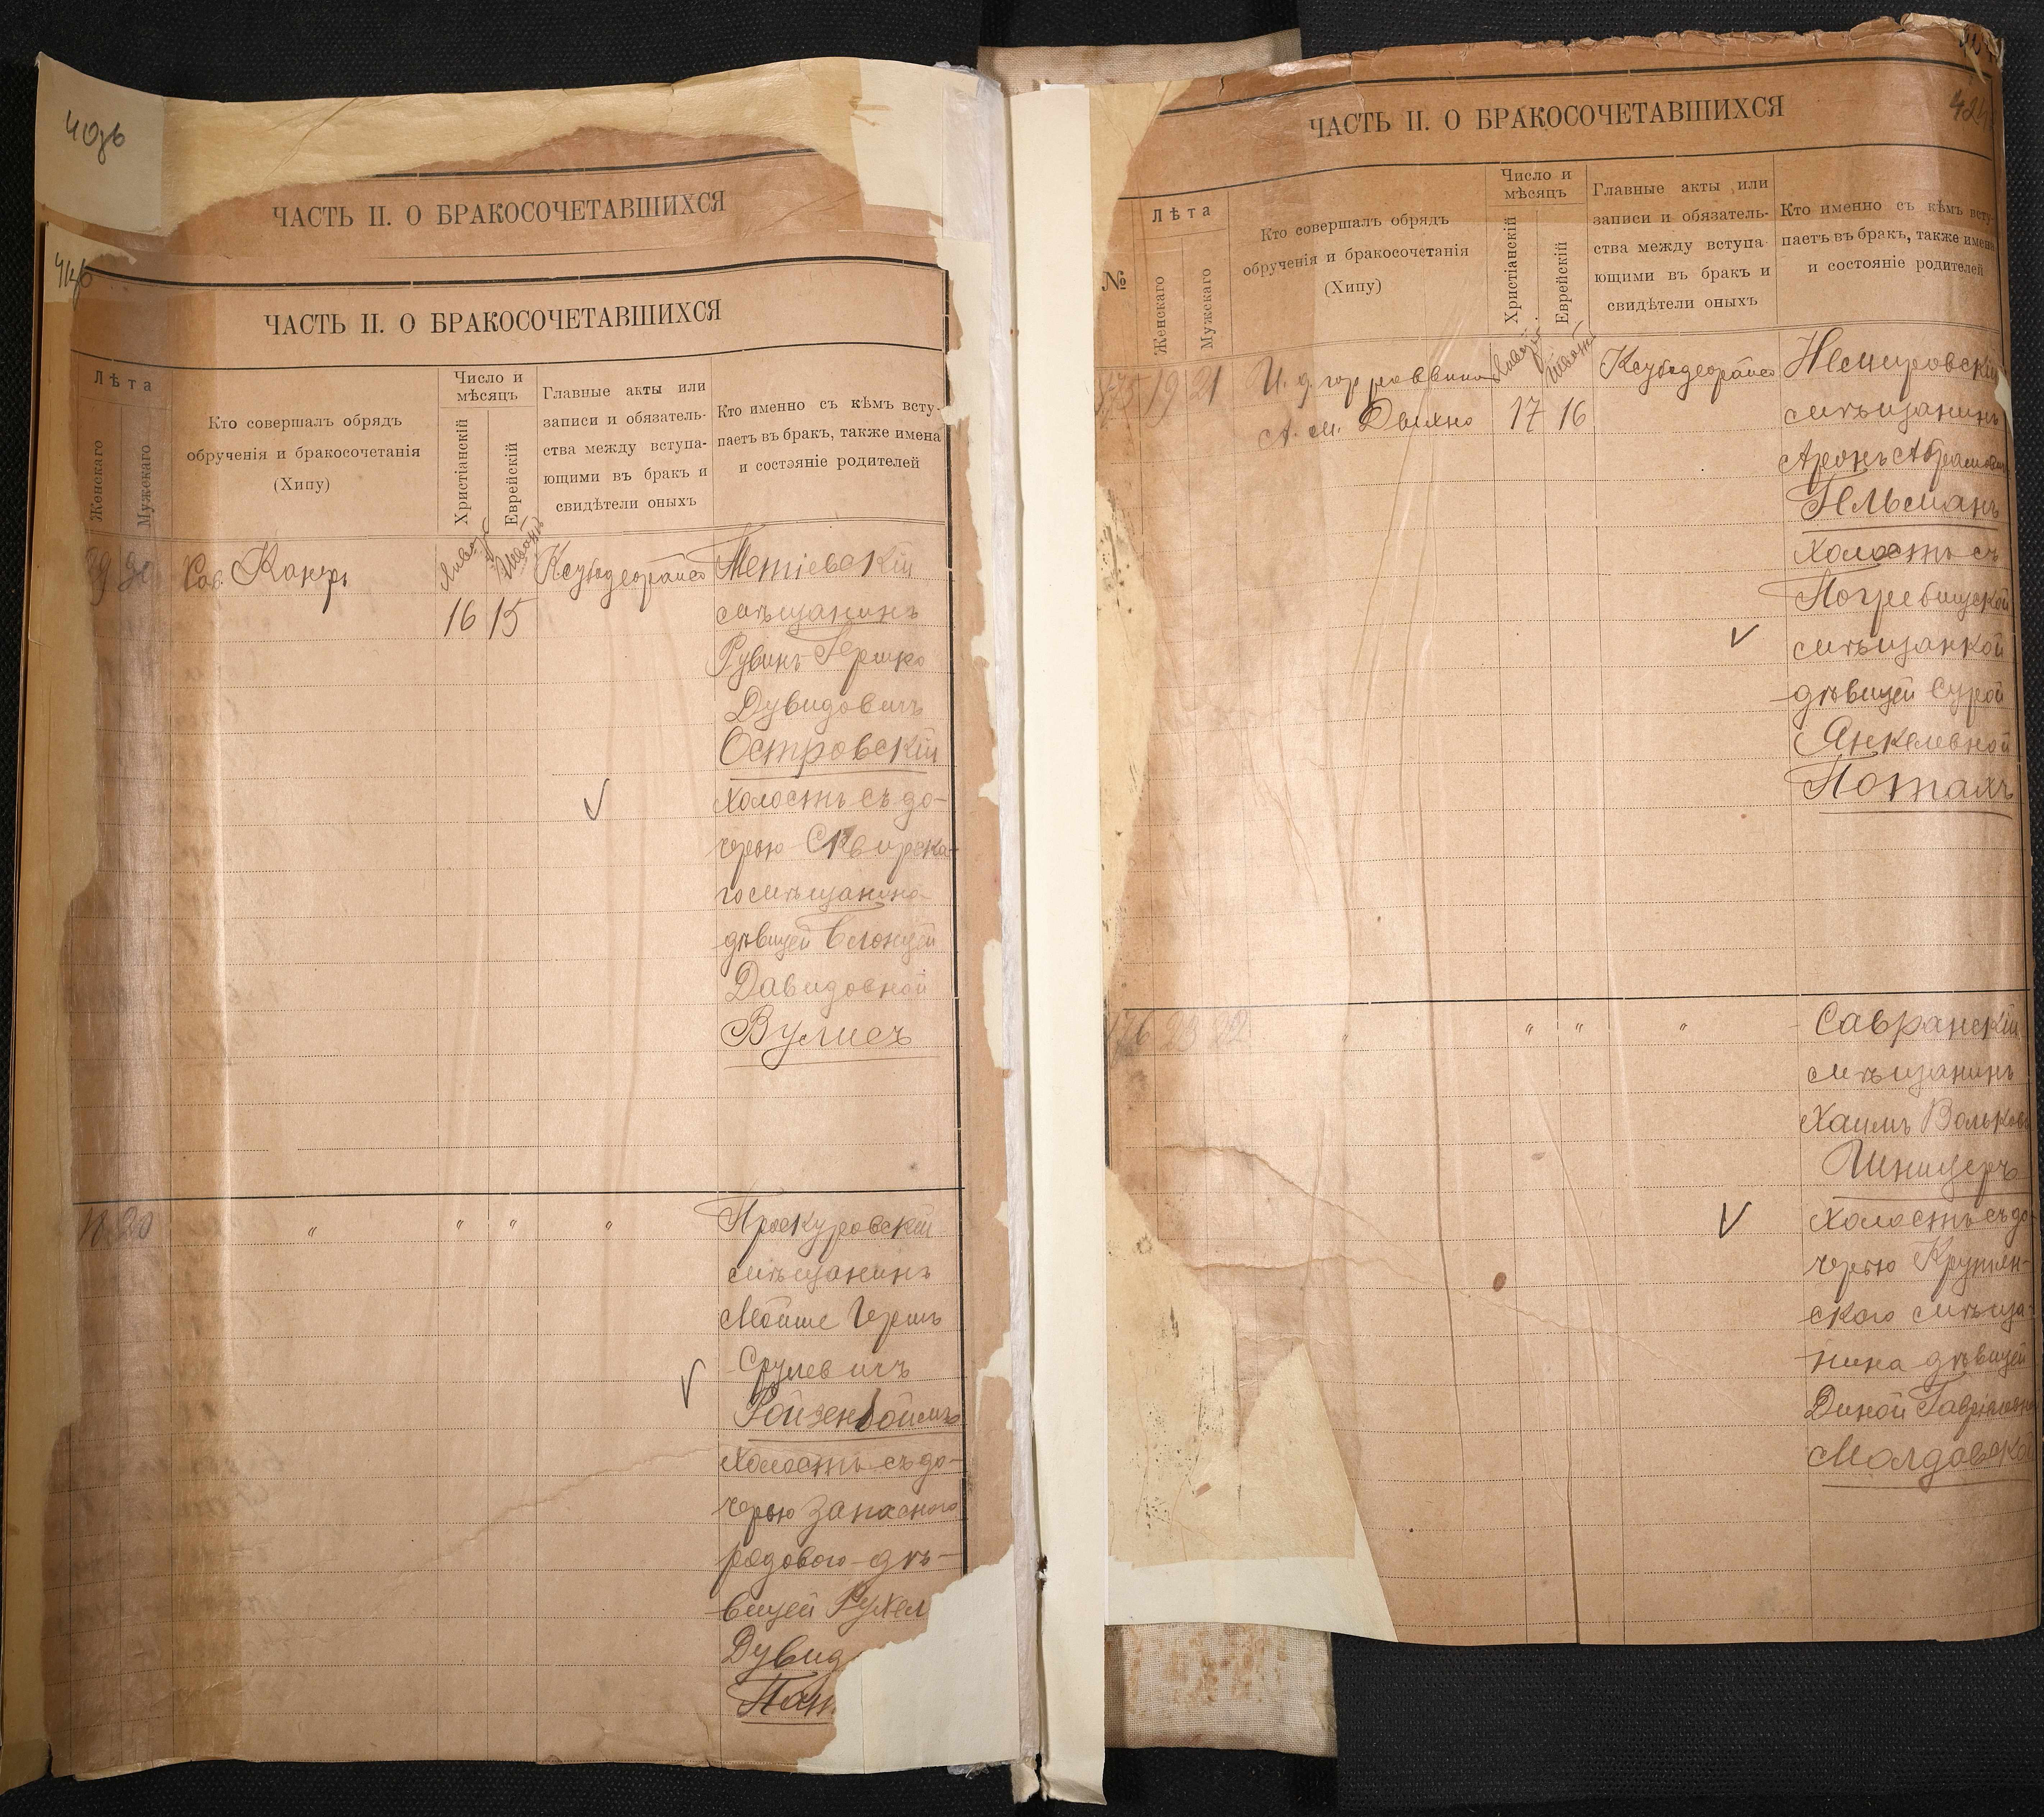 40об
ЧАСТЬ II. О БРАКОСОЧЕТАВШИХСЯ
41об
ЧАСТЬ II. О БРАКОСОЧЕТАВШИХСЯ
Лѣта
Женскаго
Мужскаго
Кто совершалъ обрядъ
обрученія и бракосочетанія
(Хипу)
Число и
мѣсяцъ
Христіанскій
Еврейскій
Главные акты или
записи и обязатель-
ства между вступа-
ющими въ бракъ и
свидѣтели оныхъ
Кто именно съ кѣмъ всту-
паетъ въ бракъ, также имена
и состояніе родителей
Январ
Шватъ
16 15
Тетіевскій
мѣщанинъ
Рувинъ Гершко
Дувидовичъ
Островскій
холостъ съ до-
черью Сквирска-
го мѣщанина
дѣвицей
Давидовной
Вулисъ
20 " " " "
Проскуровскій
мѣщанинъ
Мойше Гершъ
Срулевичъ
Ройзенбоймъ
холостъ съ до-
черью запасного
рядового дѣ-
вицей Рухел
Дувид
ЧАСТЬ II. О БРАКОСОЧЕТАВШИХСЯ
№
Лѣта
Женскаго
Мужскаго
Кто совершалъ обрядъ
обрученія и бракосочетанія
(Хипу)
Число и
мѣсяцъ
Христіанскій
Еврейскій
Главные акты или
записи и обязатель-
ства между вступа-
ющими въ бракъ и
свидѣтели оныхъ
Кто именно съ кѣмъ всту-
паетъ въ бракъ, также имена
и состояніе родителей
19 21 И. д. гор раввина
А. М. Дыхно
Январ
Шватъ
17 16
Немировскій
мѣщанинъ
Аронъ Абрамович
Гельманъ
холостъ съ
Погребищской
мѣщанкой
дѣвицей Сурой
Янкелевной
Потахъ
23 22 " " " "
Савранскій
мѣщанинъ
Хаимъ Вольков
Шницеръ
холостъ съ до-
черью Крутян-
ского мѣща-
нина дѣвицей
Диной Гавріловной
Молдавской